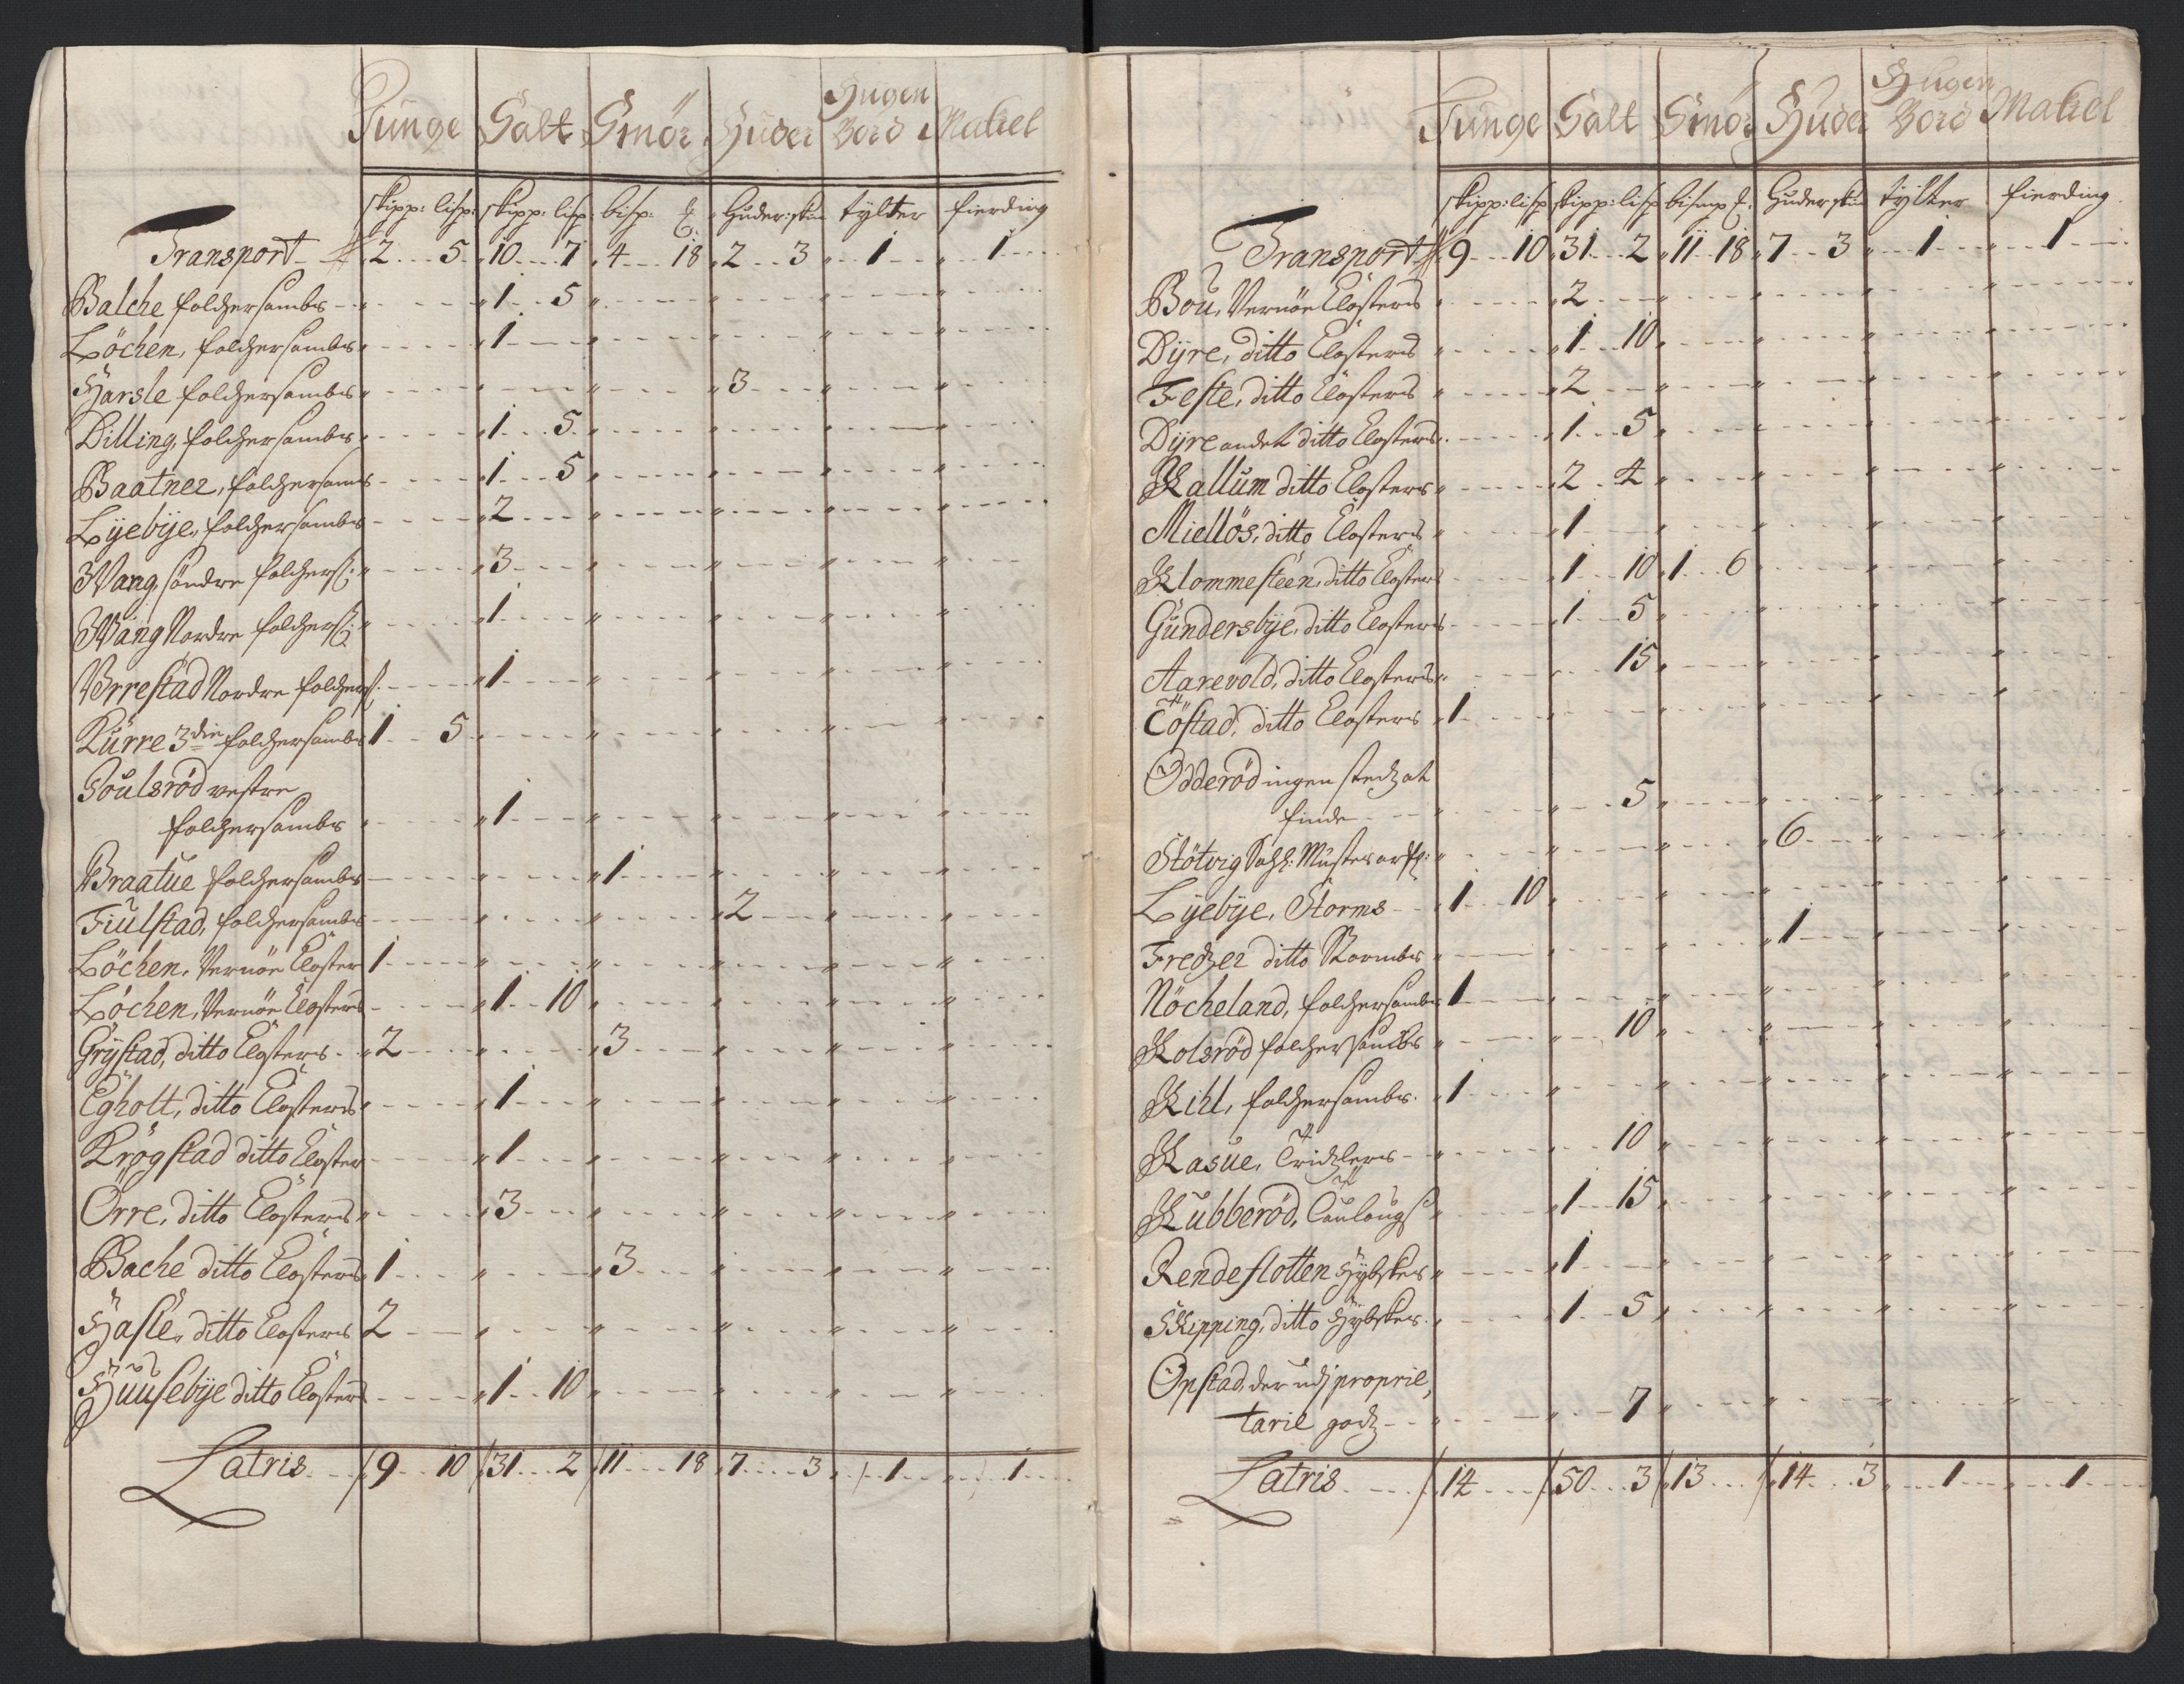 Tunge Salt Smör Huder Hugen Bord Makrel
skipp: lisp: skipp: lisp: bisp: Huder: skin tylter fierding
Transport 2 5 10 7 4 18 2 3 1 1
Balche folchersambs 1 5
Löchen, folchersambs 1
Harsle folchersambs 3
Dilling, folchersambs 1 5
Baatner, folchersams 1 5
Lyebÿe, folchersambs 2
Wang, söndre folchers: 3
Wang Nordre folchers: 1
Wrrestad Nordre folchers: 1
Kurre 3die folchersambs 1 5
Poulsröd vestre
folchersambs 1
Braatue folchersambs 1
Fiulstad, folchersambs 2
Löchen, Vernöe Closter 1
Löchen, Vernöe Closters 1 10
Grÿstad, ditto Closters 2 3
Egholt, ditto Closters 1
Krögstad ditto Closter 1
Orre, ditto Closters 3
Bache ditto Closters 1 3
Hasle, ditto Closters 2
Huusebÿe ditto Closters 1 10
Latris 9 10 31 2 11 18 7 3 1 1
Tunge Salt Smör Huder Hugen Bord Makrel
skipp: lisp skipp: lisp bismp Huder skin tylter fierding
Transport 9 10 31 2 11 18 7 3 1 1
Bou, Vernöe Closters 2
Dÿre, ditto Closters 1 10
Feste, ditto Closters 2
Dÿre andet ditto Closters 1 5
Kallum ditto Closters 2 4
Miellös, ditto Closters 1
Klommesteen, ditto Closters 1 10 1 6
Gundersbÿe, ditto Closters 1 5
Aarevold, ditto Closters 15
Töstad, ditto Closters 1
Odderöd ingen stedz at
finde 5
Stötvig Musters 6
Lÿebÿe, Storms 1 10
Fredzer ditto Stormbs 1
Nöcheland, folchersambs 1
Kolsröd folchersambs 10
Kihl, folchersambs 1
Kasue, 10
Kubberöd, 1 15
Rendeflotten Hybskes 1
Skipping, ditto Hybskes 1 5
Opstad, der udj proprie
tarie godz 7
Latris 14 50 3 13 14 3 1 1